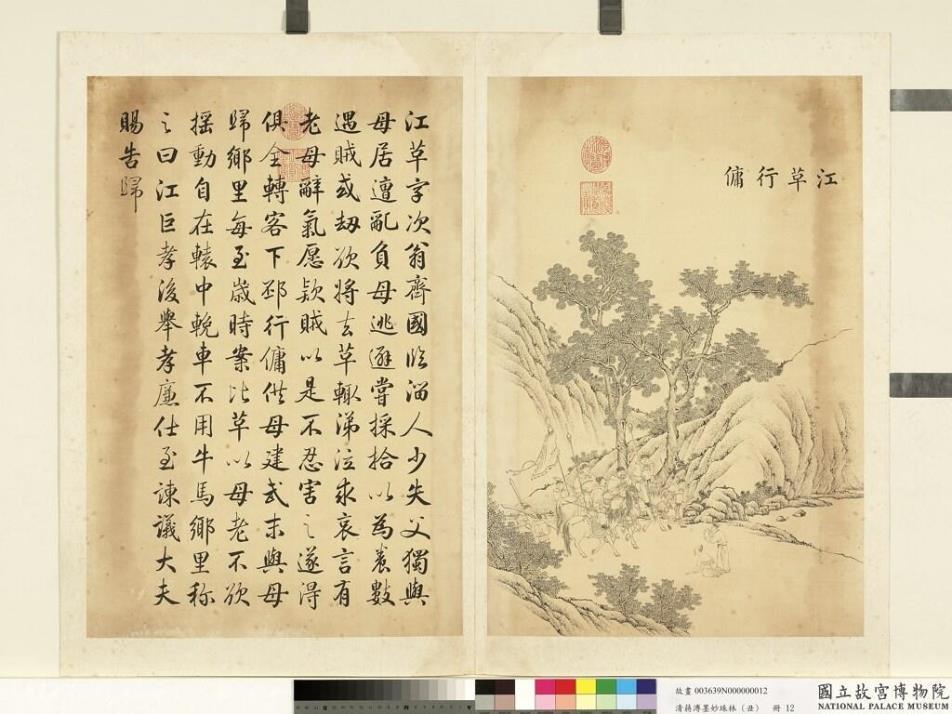 江革行傭
江革字次翁齊國臨淄人少失父獨與
母居遭亂負母逃避嘗採拾以為養數
遇賊或劫欲將去革輒涕泣求哀言有
老母辭氣愿款賊以是不忍害之遂得
俱全轉客下邳行傭供母建武末與母
歸鄉里每至歲時案比革以母老不欲
搖動自在轅中輓車不用牛馬鄉里称
之曰江巨孝後舉孝廉仕至諫議大夫
賜告歸
故畫 003639N000000012
清蔣溥墨妙珠林（丑） 冊 12
國立故宮博物院
NATIONAL PALACE MUSEUM